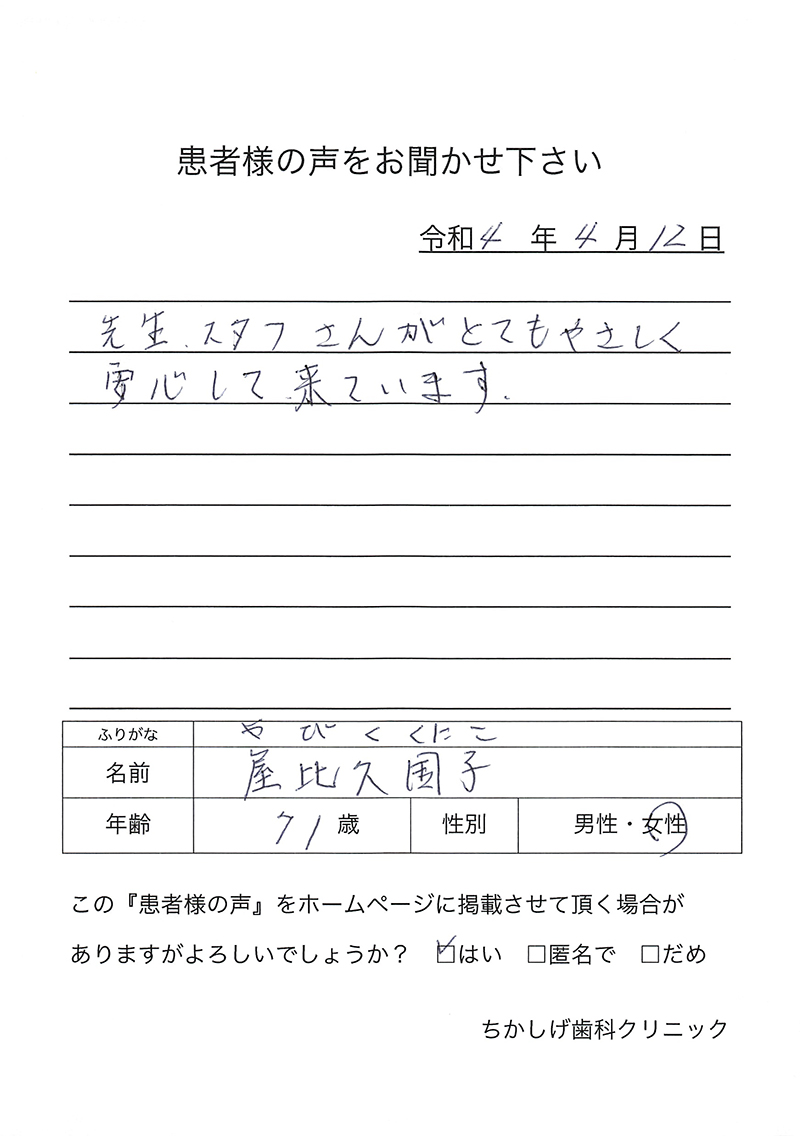 患者様の声をお聞かせ下さい
令和4年4月12日
先生、スタフさんがとてもやさしく
安心して来ています。
ふりがな やびくくにこ
名前 屋比久国子
年齢 71歳 性別 男性・女性
この『患者様の声』をホームページに掲載させて頂く場合が
ありますがよろしいでしょうか？ ☑はい □匿名で □だめ
ちかしげ歯科クリニック